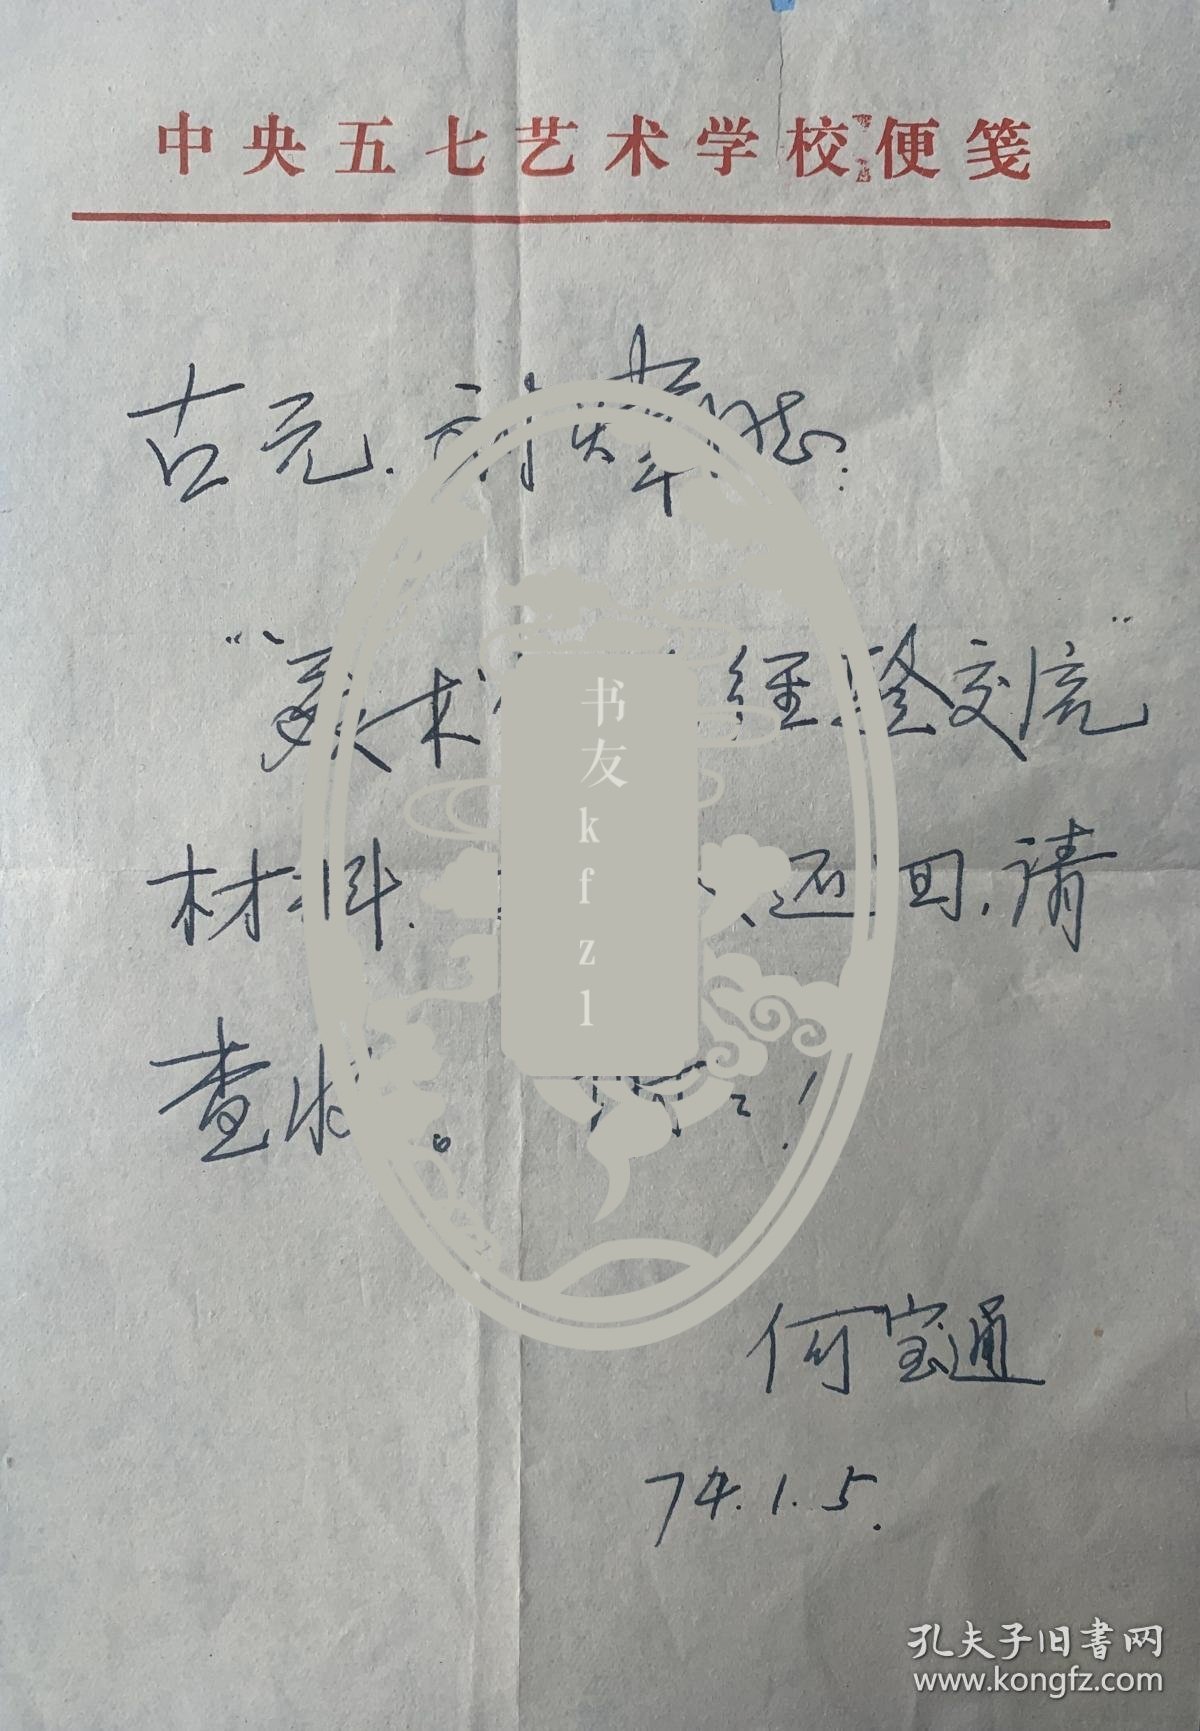 中央五七艺术学校便笺
古元.志:
“美术经验交流”
材料.还回,请
查收。!
何宝通
74.1.5.
书友kfzl
孔夫子旧書网
www.kongfz.com